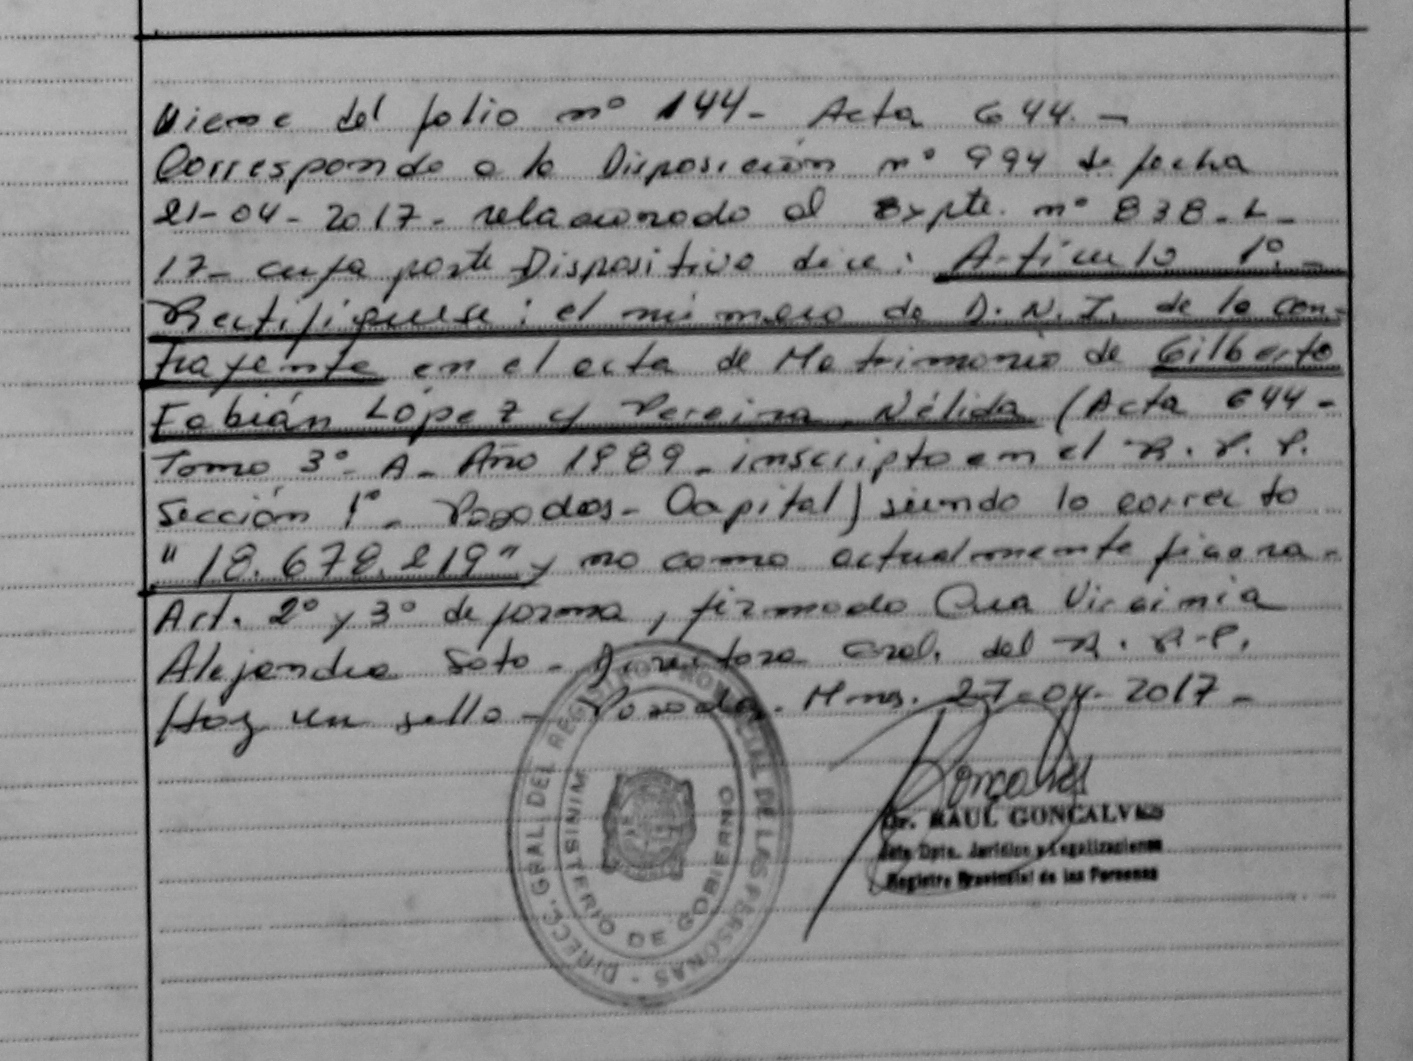 Viene del folio nº 144- Acta 644.-
Corresponde a la Disposición nº 994 de fecha
21-04-2017- relacionado al Expte. nº 838-L-
17- cuya parte Dispositiva dice: Artículo 1º.-
Rectifíquese: el número de D.N.I. de la con-
trayente en el acta de Matrimonio de Gilberto
Fabián López y Pereira, Nélida (Acta 644-
Tomo 3º- A- Año 1989- inscripto en el R.P.P.
Sección 1º- Posadas- Capital) siendo lo correcto
"18.678.219" y no como actualmente figura-
Art. 2º y 3º de forma, firmado Ana Virginia
Alejandra Soto- Directora Gral. del R.P.P.
Hay un sello- Posadas- Mnes. 27-04-2017-
DIRECC. GRAL. DEL REGISTRO PROVINCIAL DE LAS PERSONAS -
MINISTERIO DE GOBIERNO
Goncalves
Dr. RAUL GONCALVES
Jefe Dpto. Jurídico y Legalizaciones
Registro Provincial de las Personas